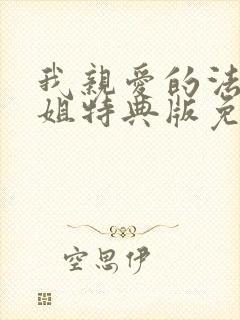 我親愛的法
姐特典版免
空思伊